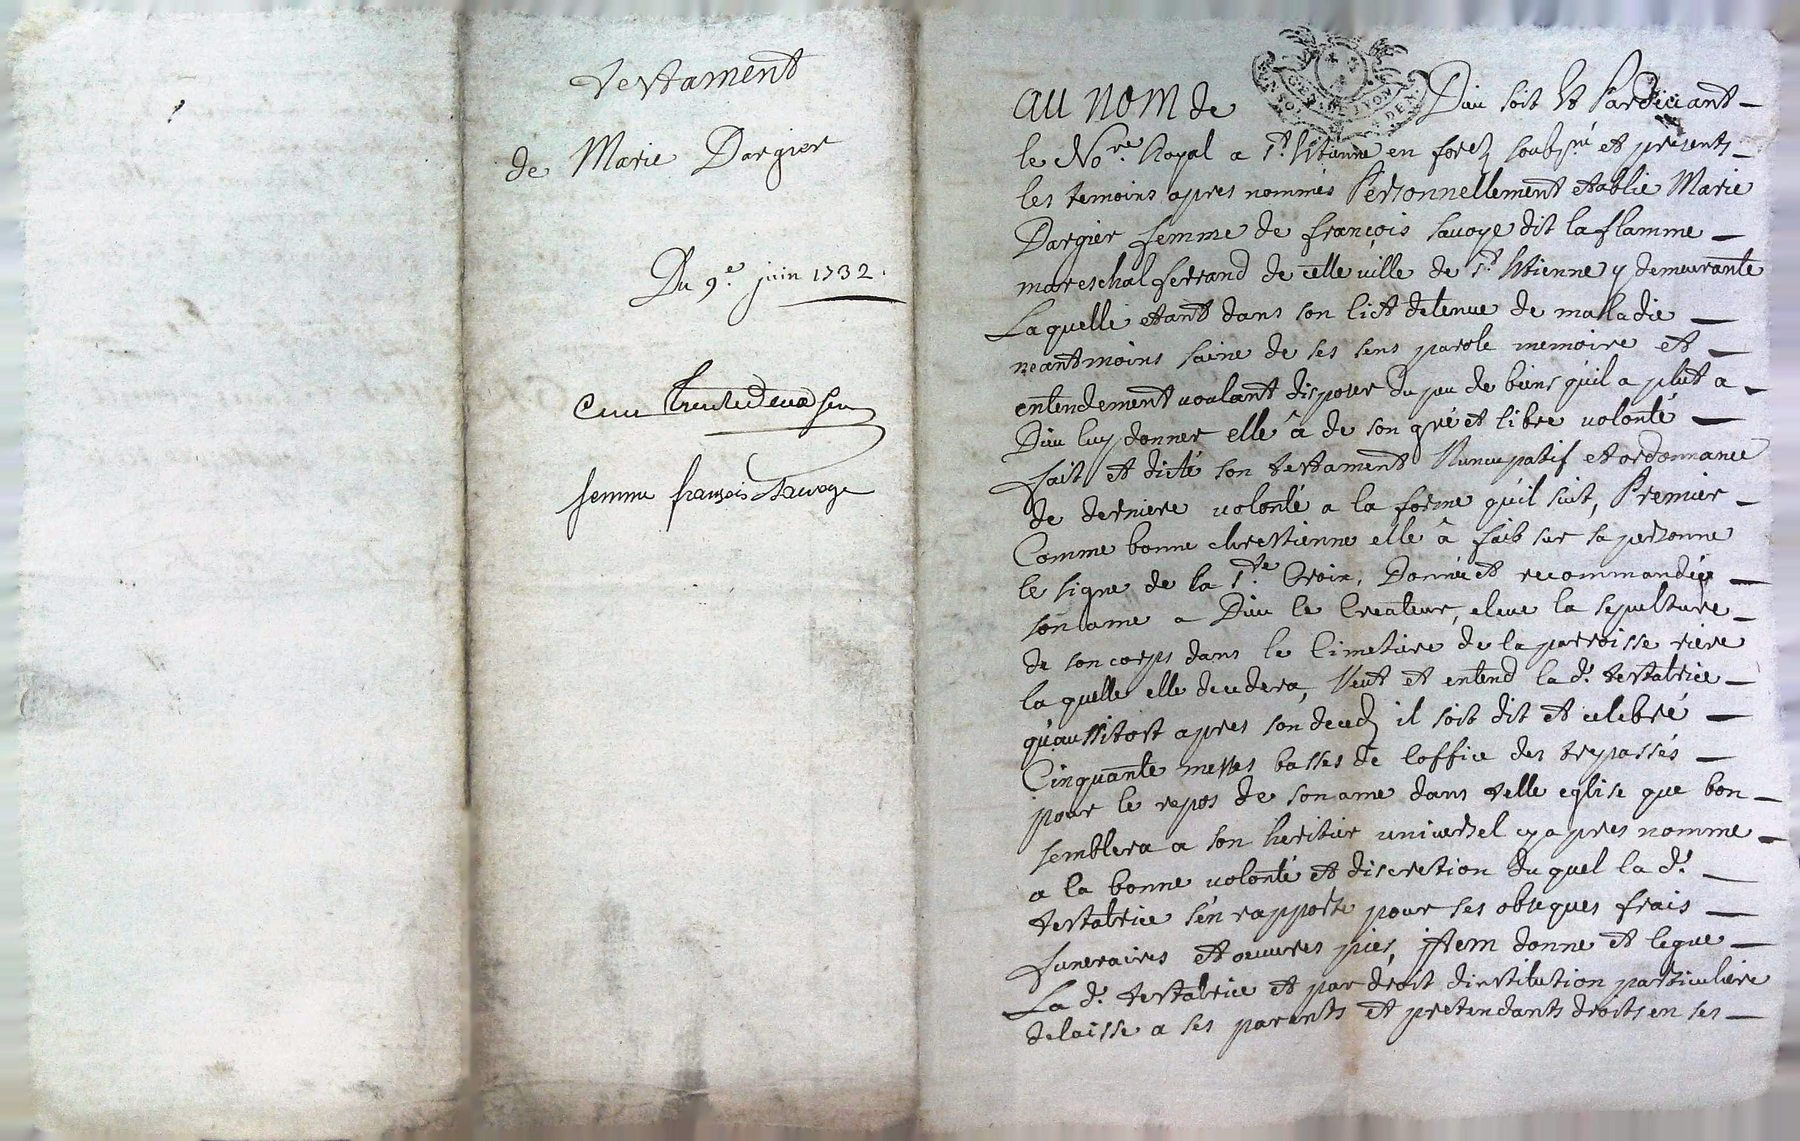 testament
de Marie Dargier
Du 9.e juin 1732.
femme françois Sauvoye
GEN. DE LYON
DEN.
au nom de Dieu soit Et Pardevant
le No.re Royal a St. Etienne en forez soubs.né et presents
les temoins apres nommés Personnellement etablie Marie
Dargier femme de françois sauoye dit la flamme
mareschal ferrand de cette uille de St. Etienne y demeurante
Laquelle etant dans son lict detenue de malladie
neantmoins saine de ses sens parole memoire et
entendement uoulant disposer du peu de biens qu'il a plut a
Dieu luy donner elle à de son gré et libre uolonté
fait et dicté son testament Nuncupatif et ordonnance
de derniere uolonté a la forme qu'il suit, Premier
Comme bonne chrestienne elle à fait sur sa personne
le signe de la S.te Croix, Donnée et recommandée
son ame a Dieu le Createur, eleue la sepulture
de son corps dans le Cimetiere de la parroisse riere
laquelle elle decedera, Ueut et entend la d.e testatrice
qu'aussitost apres son deced il soit dit et celebré
Cinquante messes basses de l'office des trepassés
pour le repos de son ame dans telle eglise que bon
semblera a son heritier uniuersel cy apres nommé
a la bonne uolonté et discretion duquel la d.e
testatrice s'en rapporte pour ses obseques frais
funeraires et oeuures pies, jtem donne et legue
La d.e testatrice et par droit d'institution particuliere
delaisse a ses parents et pretendants droits en ses